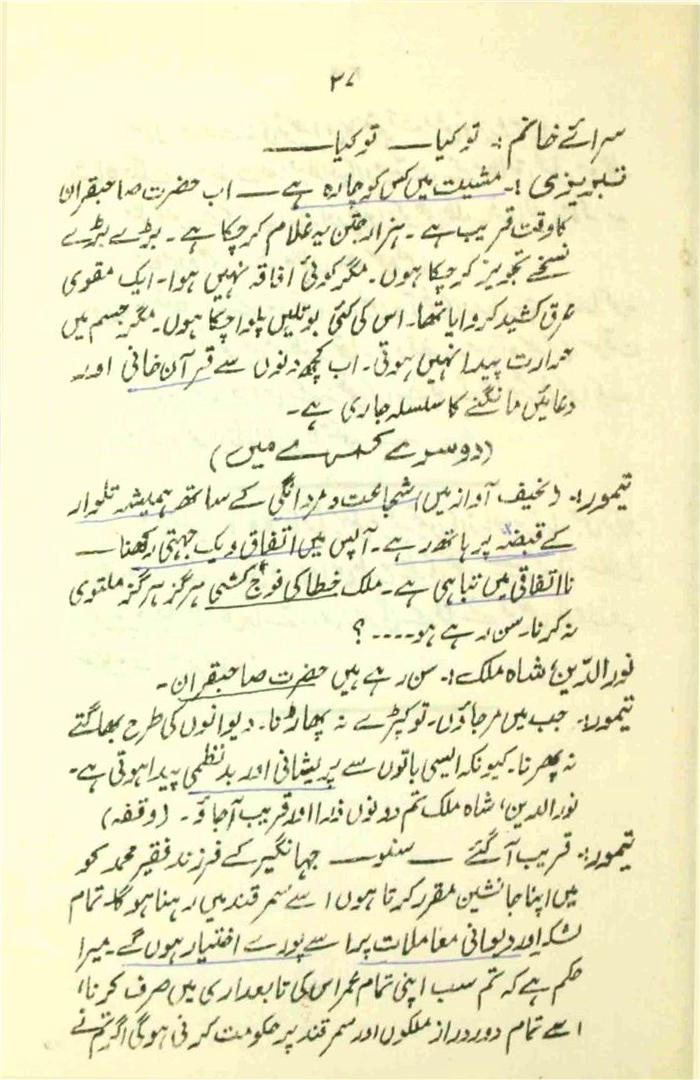 ۳۷
سرائے خانم :۔ تو کیا ــــ تو کیا ــــــــ
تبریزی :۔ مشیت میں کس کو چارہ ہے ــــ اب حضرت صاحبقران
کا وقت قریب ہے ۔ ہزار جتن یہ غلام کر چکا ہے ۔ بڑے بڑے
نسخے تجویز کر چکا ہوں ۔ مگر کوئی افاقہ نہیں ہوا ۔ ایک مقوی
عرق کشید کروایا تھا ۔ اس کی کئی بوتلیں پلوا چکا ہوں ۔ مگر جسم میں
حرارت پیدا نہیں ہوتی ۔ اب کچھ دنوں سے قرآن خانی اور
دعائیں مانگنے کا سلسلہ جاری ہے ۔
(دوسرے کمرے میں)
تیمور :۔ (نحیف آواز میں) شجاعت و مردانگی کے ساتھ ہمیشہ تلوار
کے قبضہ پر ہاتھ رہے ۔ آپس میں اتفاق و یک جہتی رکھنا ــــ
نااتفاقی میں تباہی ہے ۔ ملک خطا کی فوج کشی ہرگز ہرگز ملتوی
نہ کرنا ۔ سن رہے ہو ۔۔۔۔ ؟
نورالدّین، شاہ ملک :۔ سن رہے ہیں حضرت صاحبقران ۔
تیمور :۔ جب میں مر جاؤں ۔ تو کپڑے نہ پھاڑنا ۔ دیوانوں کی طرح بھاگتے
نہ پھرنا ۔ کیونکہ ایسی باتوں سے پریشانی اور بدنظمی پیدا ہوتی ہے ۔
نورالدین، شاہ ملک تم دونوں ذرا اور قریب آجاؤ ۔ (وقفہ)
تیمور :۔ قریب آ گئے ــــ سنو ــــ جہانگیر کے فرزند فقیر محمد کو
میں اپنا جانشین مقرر کرتا ہوں اسے سمرقند میں رہنا ہوگا ۔ تمام
لشکر اور دیوانی معاملات پر اسے پورے اختیار ہوں گے ۔ میرا
حکم ہے کہ تم سب اپنی تمام عمر اس کی تابعداری میں صرف کرنا،
اسے تمام دور دراز ملکوں اور سمرقند پر حکومت کرنی ہوگی اگر تم نے